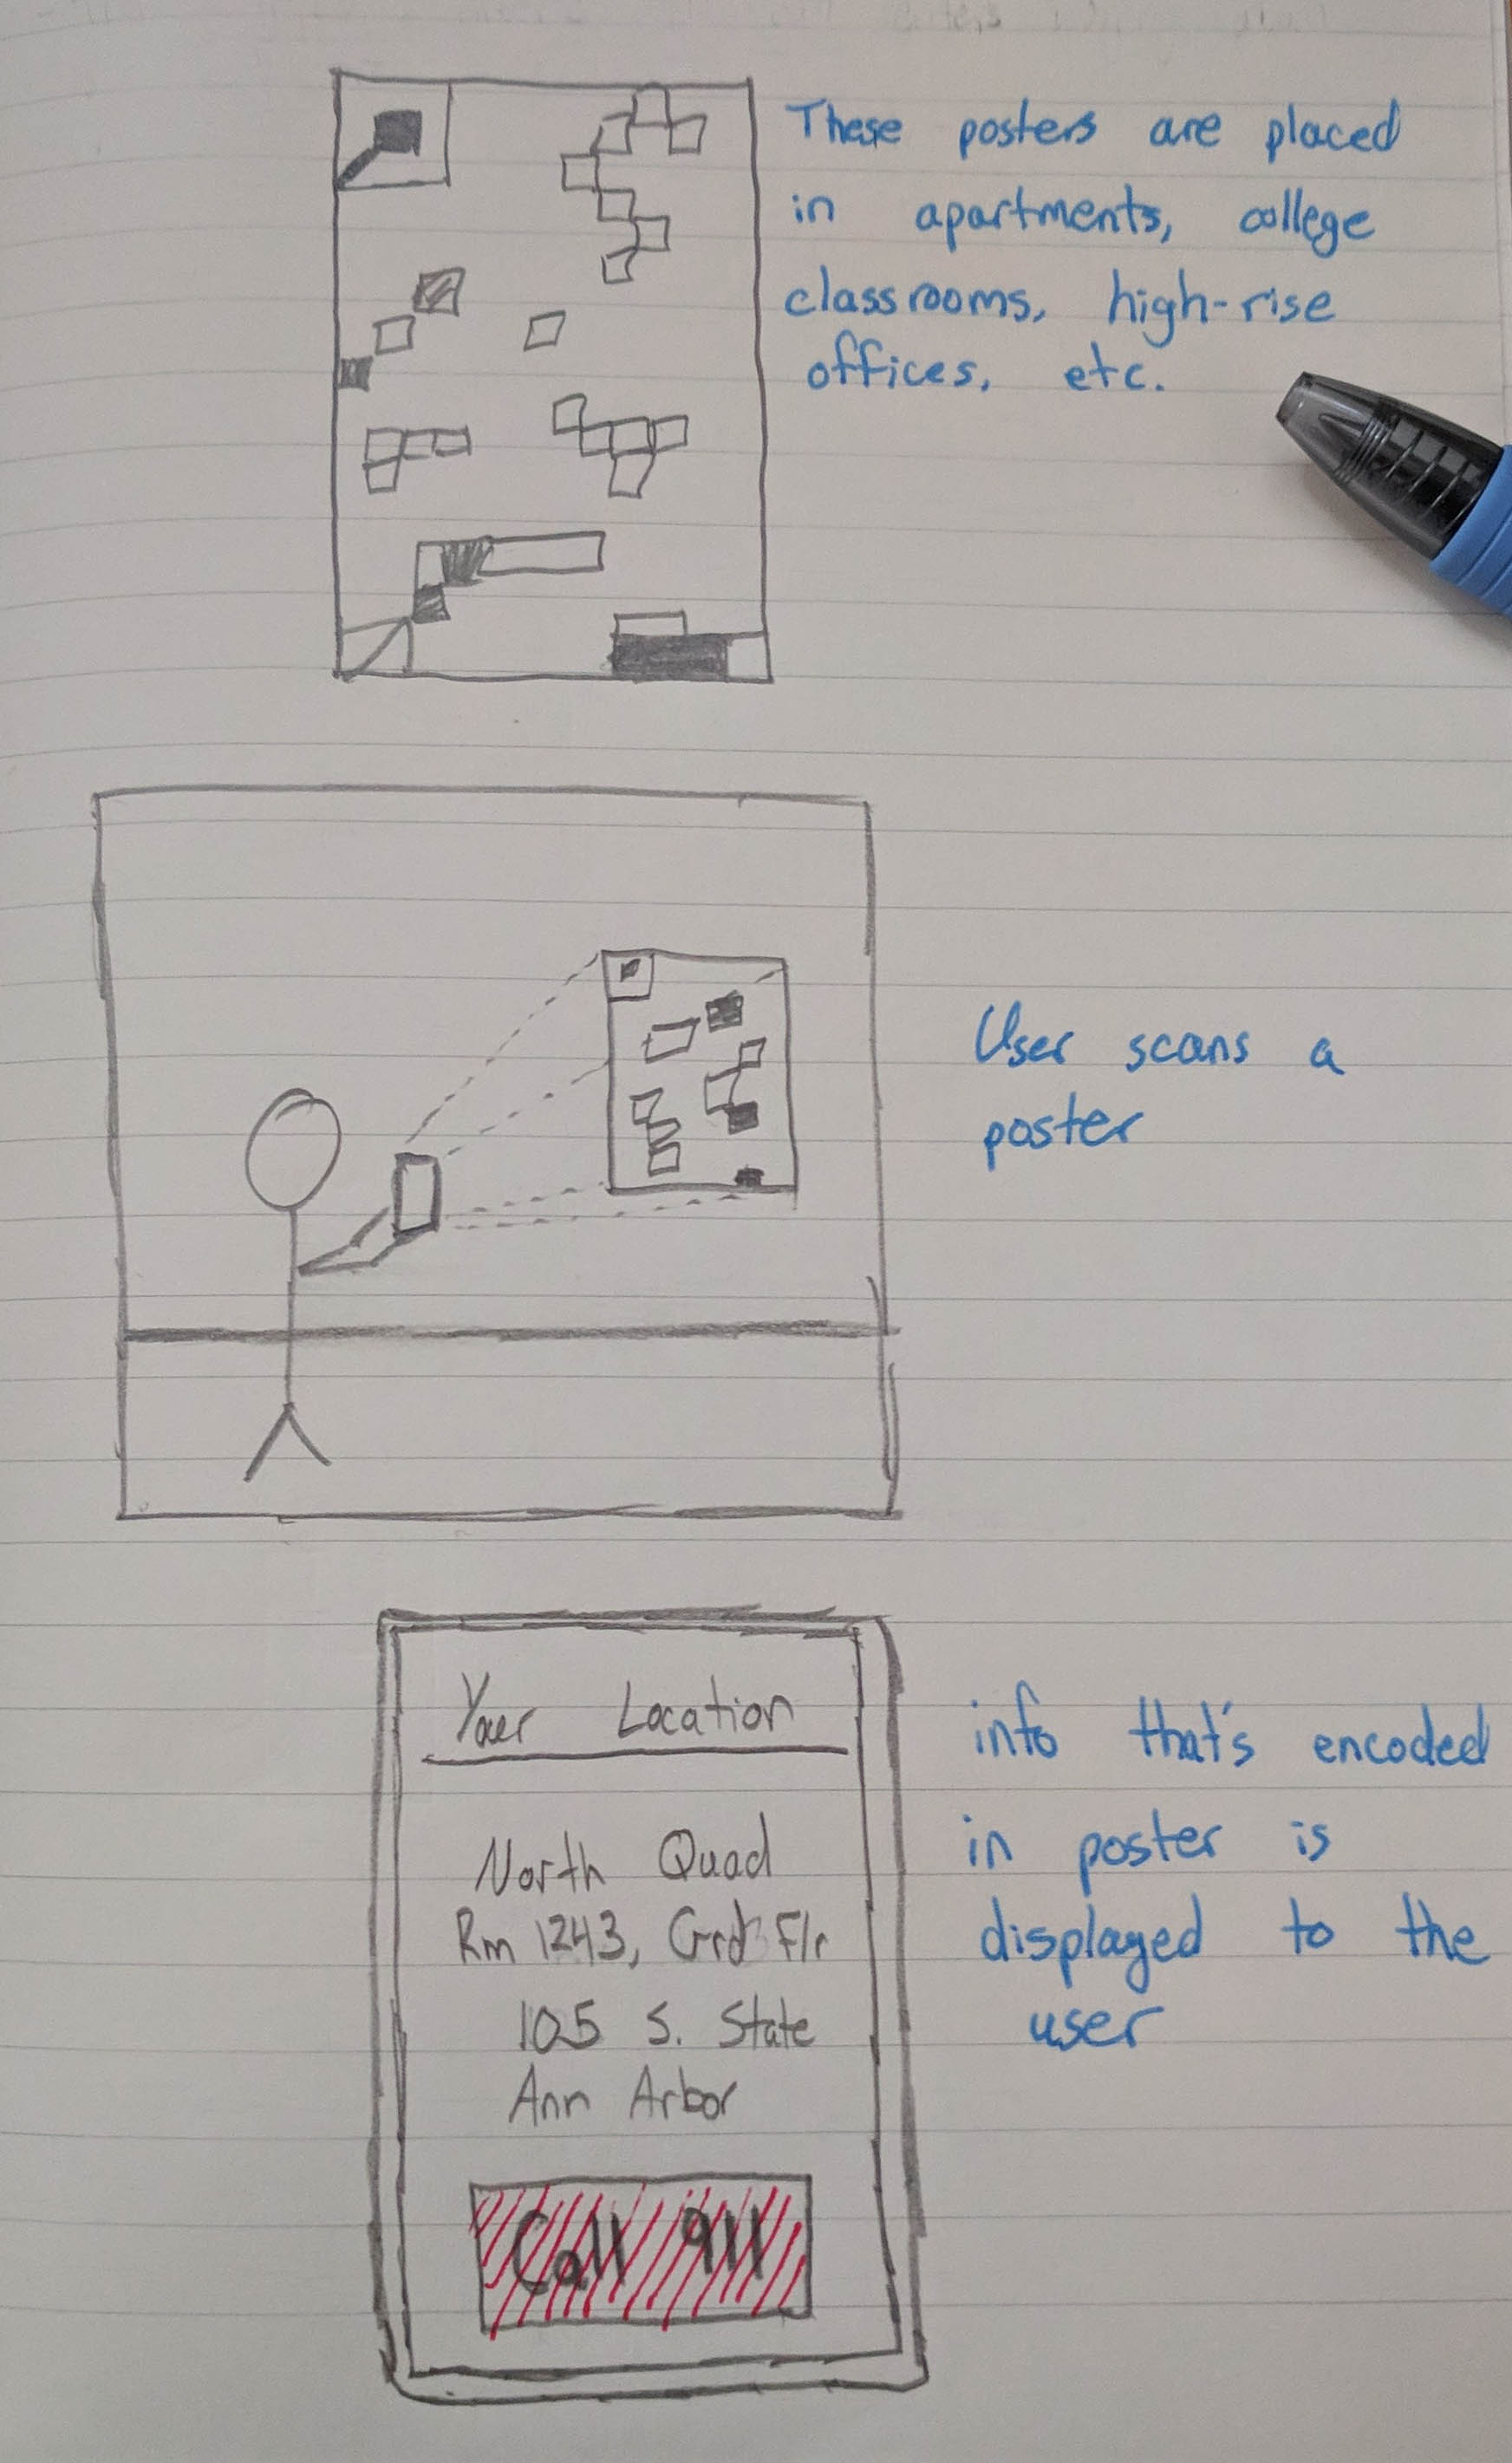 These posters are placed
in apartments, college
classrooms, high-rise
offices, etc.
User scans a
poster
Your Location
North Quad
Rm 1243, Grd Flr
105 S. State
Ann Arbor
Call 911
info that's encoded
in poster is
displayed to the
user